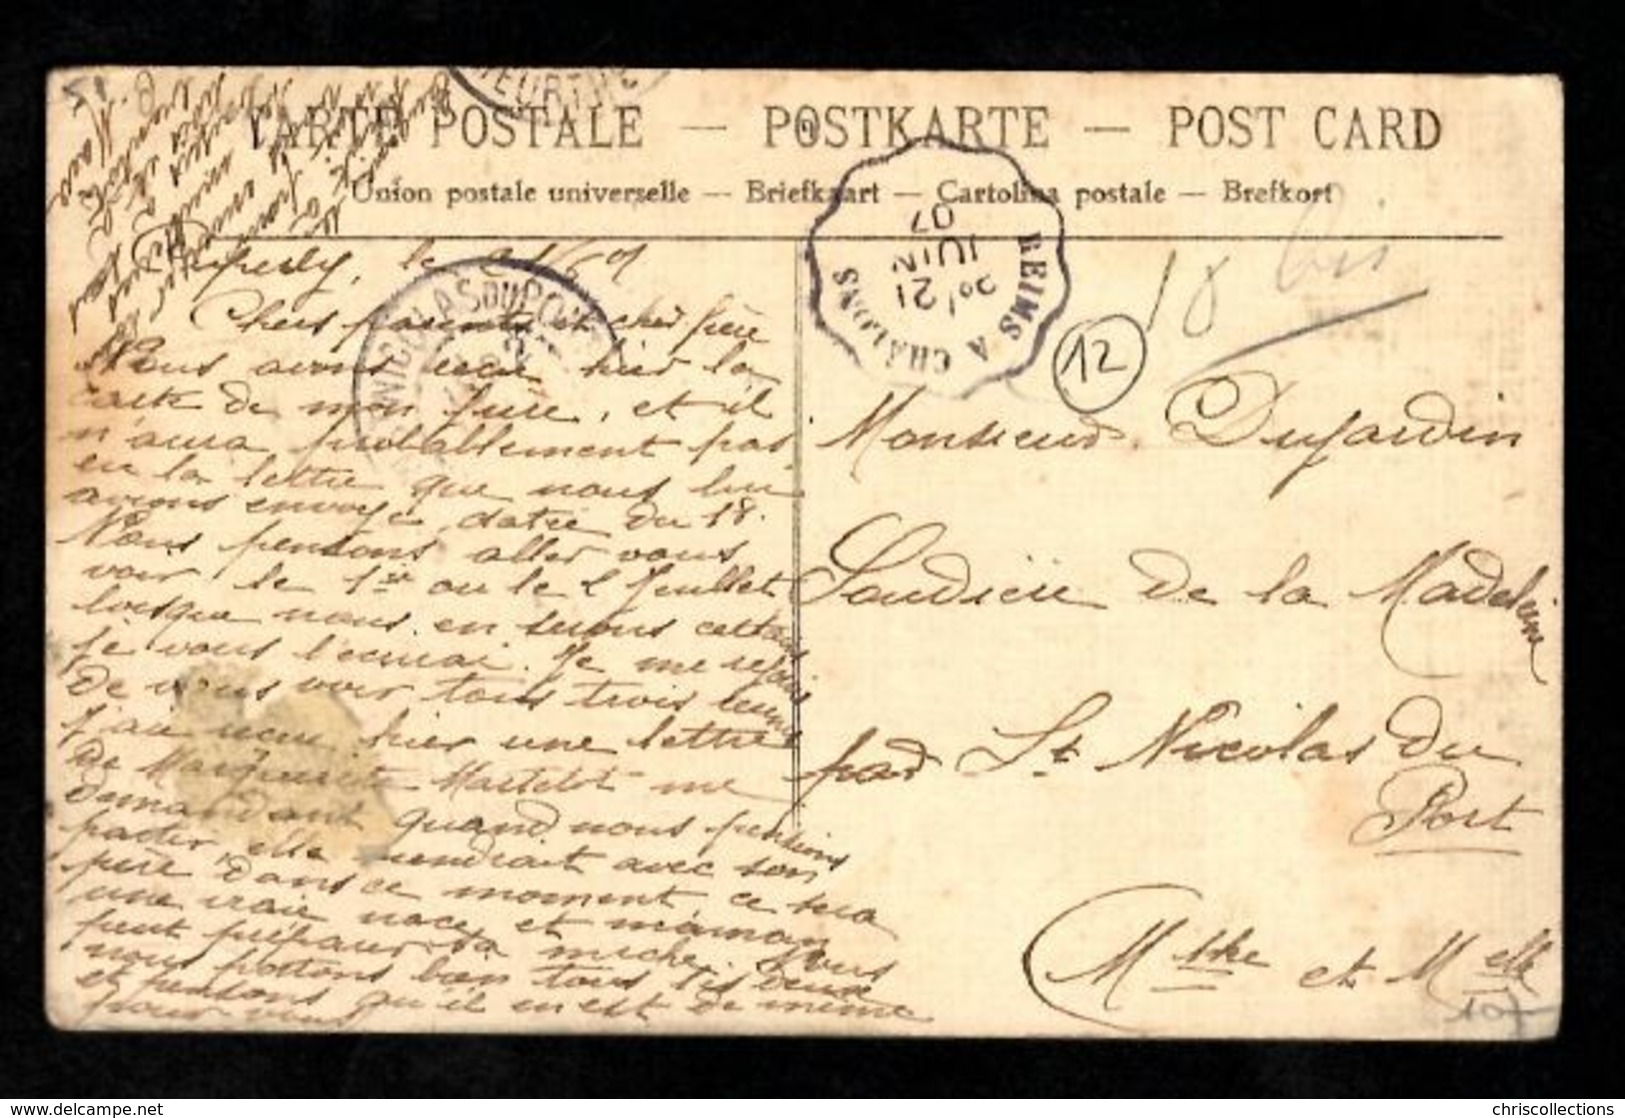 CARTE POSTALE — POSTKARTE — POST CARD
Union postale universelle — Briefkaart — Cartolina postale — Brefkort
MEURTHE
REIMS A CHALONS
21
JUIN
07
NICOLAS DU PORT
12
18 bis
le 21/6 07
Chers parents et cher frère
Nous avons reçu hier la
carte de mon frère, et il
n'aura probablement pas
eu la lettre que nous lui
avions envoyé, datée du 18.
Nous pensons aller vous
voir le 1er ou le 2 Juillet
lorsque nous en serons certains
je vous l'écrirai. Je me réjouis
de vous voir tous trois
j'ai reçu hier une lettre
de Marguerite Martelot me
demandant quand nous pensions
partir, elle viendrait avec son
père, dans ce moment ce sera
une vraie noce, et maman
peut préparer sa miche. Nous
nous portons bien tous les deux
et pensons qu'il en est de même
pour vous
Monsieur Dujardin
Soudière de la Madeleine
par St Nicolas du
Port
Mthe et Melle
chriscollections